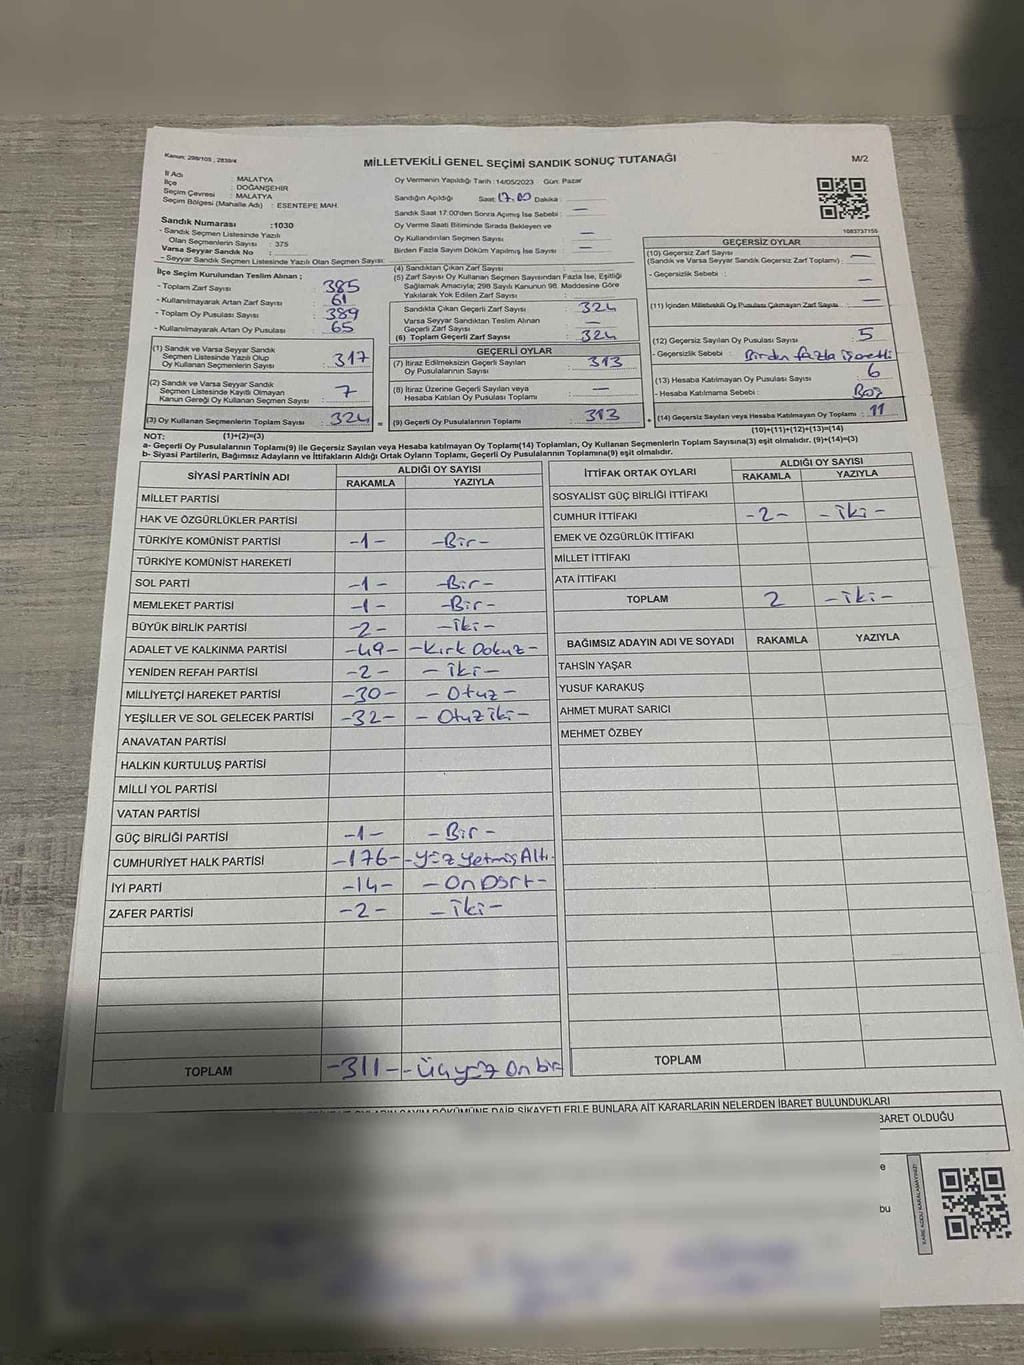 Kanun: 298/105 , 2839/4
MİLLETVEKİLİ GENEL SEÇİMİ SANDIK SONUÇ TUTANAĞI
M/2
İl Adı : MALATYA
İlçe : DOĞANŞEHİR
Seçim Çevresi : MALATYA
Seçim Bölgesi (Mahalle Adı) : ESENTEPE MAH.
Sandık Numarası :1030
- Sandık Seçmen Listesinde Yazılı
Olan Seçmenlerin Sayısı : 375
Varsa Seyyar Sandık No :
- Seyyar Sandık Seçmen Listesinde Yazılı Olan Seçmen Sayısı:
Oy Vermenin Yapıldığı Tarih :14/05/2023 Gün: Pazar
Sandığın Açıldığı Saat: 17.00 Dakika :
Sandık Saat 17:00'den Sonra Açılmış İse Sebebi : —
Oy Verme Saati Bitiminde Sırada Bekleyen ve
Oy Kullandırılan Seçmen Sayısı : —
Birden Fazla Sayım Döküm Yapılmış İse Sayısı : —
1083737155
İlçe Seçim Kurulundan Teslim Alınan ;
- Toplam Zarf Sayısı : 385
- Kullanılmayarak Artan Zarf Sayısı : 61
- Toplam Oy Pusulası Sayısı : 389
- Kullanılmayarak Artan Oy Pusulası : 65
(1) Sandık ve Varsa Seyyar Sandık
Seçmen Listesinde Yazılı Olup
Oy Kullanan Seçmenlerin Sayısı : 317
(2) Sandık ve Varsa Seyyar Sandık
Seçmen Listesinde Kayıtlı Olmayan
Kanun Gereği Oy Kullanan Seçmen Sayısı : 7
(3) Oy Kullanan Seçmenlerin Toplam Sayısı : 324 =
(1)+(2)=(3)
(4) Sandıktan Çıkan Zarf Sayısı :
(5) Zarf Sayısı Oy Kullanan Seçmen Sayısından Fazla İse, Eşitliği
Sağlamak Amacıyla; 298 Sayılı Kanunun 98. Maddesine Göre
Yakılarak Yok Edilen Zarf Sayısı :
Sandıkta Çıkan Geçerli Zarf Sayısı : 324
Varsa Seyyar Sandıktan Teslim Alınan
Geçerli Zarf Sayısı : —
(6) Toplam Geçerli Zarf Sayısı : 324
GEÇERLİ OYLAR
(7) İtiraz Edilmeksizin Geçerli Sayılan
Oy Pusulalarının Sayısı : 313
(8) İtiraz Üzerine Geçerli Sayılan veya
Hesaba Katılan Oy Pusulası Toplamı : —
(9) Geçerli Oy Pusulalarının Toplamı : 313 +
GEÇERSİZ OYLAR
(10) Geçersiz Zarf Sayısı
(Sandık ve Varsa Seyyar Sandık Geçersiz Zarf Toplamı) : —
- Geçersizlik Sebebi : —
(11) İçinden Milletvekili Oy Pusulası Çıkmayan Zarf Sayısı : —
(12) Geçersiz Sayılan Oy Pusulası Sayısı : 5
- Geçersizlik Sebebi : Birden fazla işaretli
(13) Hesaba Katılmayan Oy Pusulası Sayısı : 6
- Hesaba Katılmama Sebebi : Boş
(14) Geçersiz Sayılan veya Hesaba Katılmayan Oy Toplamı : 11
(10)+(11)+(12)+(13)=(14)
NOT:
a- Geçerli Oy Pusulalarının Toplamı(9) ile Geçersiz Sayılan veya Hesaba katılmayan Oy Toplamı(14) Toplamları, Oy Kullanan Seçmenlerin Toplam Sayısına(3) eşit olmalıdır. (9)+(14)=(3)
b- Siyasi Partilerin, Bağımsız Adayların ve İttifakların Aldığı Ortak Oyların Toplamı, Geçerli Oy Pusulalarının Toplamına(9) eşit olmalıdır.
SİYASİ PARTİNİN ADI
ALDIĞI OY SAYISI
RAKAMLA YAZIYLA
MİLLET PARTİSİ
HAK VE ÖZGÜRLÜKLER PARTİSİ
TÜRKİYE KOMÜNİST PARTİSİ -1- -Bir-
TÜRKİYE KOMÜNİST HAREKETİ
SOL PARTİ -1- -Bir-
MEMLEKET PARTİSİ -1- -Bir-
BÜYÜK BİRLİK PARTİSİ -2- -İki-
ADALET VE KALKINMA PARTİSİ -49- -Kırk Dokuz-
YENİDEN REFAH PARTİSİ -2- -İki-
MİLLİYETÇİ HAREKET PARTİSİ -30- -Otuz-
YEŞİLLER VE SOL GELECEK PARTİSİ -32- -Otuz iki-
ANAVATAN PARTİSİ
HALKIN KURTULUŞ PARTİSİ
MİLLİ YOL PARTİSİ
VATAN PARTİSİ
GÜÇ BİRLİĞİ PARTİSİ -1- -Bir-
CUMHURİYET HALK PARTİSİ -176- -Yüz Yetmiş Altı-
İYİ PARTİ -14- -On Dört-
ZAFER PARTİSİ -2- -İki-
TOPLAM -311- -Üçyüz On bir
İTTİFAK ORTAK OYLARI
ALDIĞI OY SAYISI
RAKAMLA YAZIYLA
SOSYALİST GÜÇ BİRLİĞİ İTTİFAKI
CUMHUR İTTİFAKI -2- -İki-
EMEK VE ÖZGÜRLÜK İTTİFAKI
MİLLET İTTİFAKI
ATA İTTİFAKI
TOPLAM 2 -İki-
BAĞIMSIZ ADAYIN ADI VE SOYADI RAKAMLA YAZIYLA
TAHSİN YAŞAR
YUSUF KARAKUŞ
AHMET MURAT SARICI
MEHMET ÖZBEY
TOPLAM
DÖKÜMÜNE DAİR ŞİKAYETLERLE BUNLARA AİT KARARLARIN NELERDEN İBARET BULUNDUKLARI
BARET OLDUĞU
e
bu
KARE KODU KARALAMAYINIZ!